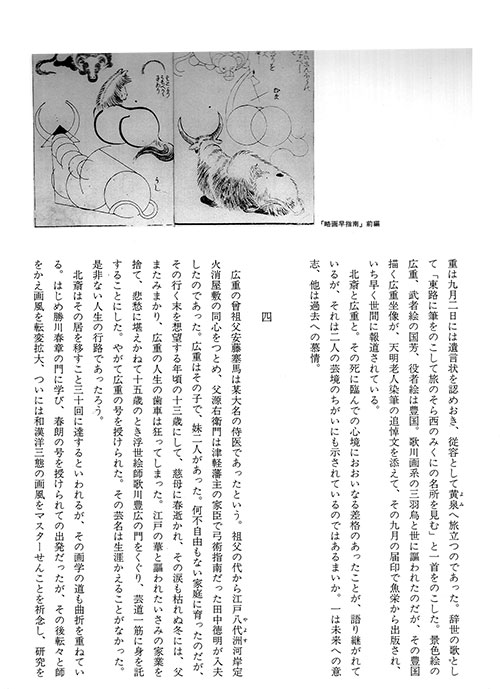 「略画早指南」前編
重は九月二日には遺言状を認めおき、従容として黄泉へ旅立つのであった。辞世の歌とし
て「東路に筆をのこして旅のそら西のみくにの名所を見む」と一首をのこした。景色絵の
広重、武者絵の国芳、役者絵は豊国。歌川画系の三羽烏と世に謳われたのだが、その豊国
描く広重坐像が、天明老人染筆の追悼文を添えて、その九月の届印で魚栄から出版され、
いち早く世間に報道されている。
北斎と広重と。その死に臨んでの心境におおいなる差格のあったことが、語り継がれて
いるが、それは二人の芸境のちがいにも示されているのではあるまいか。一は未来への意
志、他は過去への慕情。
四
広重の曾祖父安藤塞馬は某大名の侍医であったという。祖父の代から江戸八代洲河岸定
火消屋敷の同心をつとめ、父源右衛門は津軽藩主の家臣で弓術指南だった田中徳明が入夫
したのであった。広重はその子で、妹二人があった。何不自由もない家庭に育ったのだが、
その行く末を想望する年頃の十三歳にして、慈母に春逝かれ、その涙も枯れぬ冬には、父
またみまかり、広重の人生の歯車は狂ってしまった。江戸の華と謳われたいさみの家業を
捨て、悲愁に堪えかねて十五歳のとき浮世絵師歌川豊広の門をくぐり、芸道一筋に身を託
することにした。やがて広重の号を授けられた。その芸名は生涯かえることがなかった。
是非ない人生の行路であったろう。
北斎はその居を移すこと三十回に達するといわれるが、その画学の道も曲折を重ねてい
る。はじめ勝川春章の門に学び、春朗の号を授けられての出発だったが、その後転々と師
をかえ画風を転変拡大、ついには和漢洋三態の画風をマスターせんことを祈念し、研究を